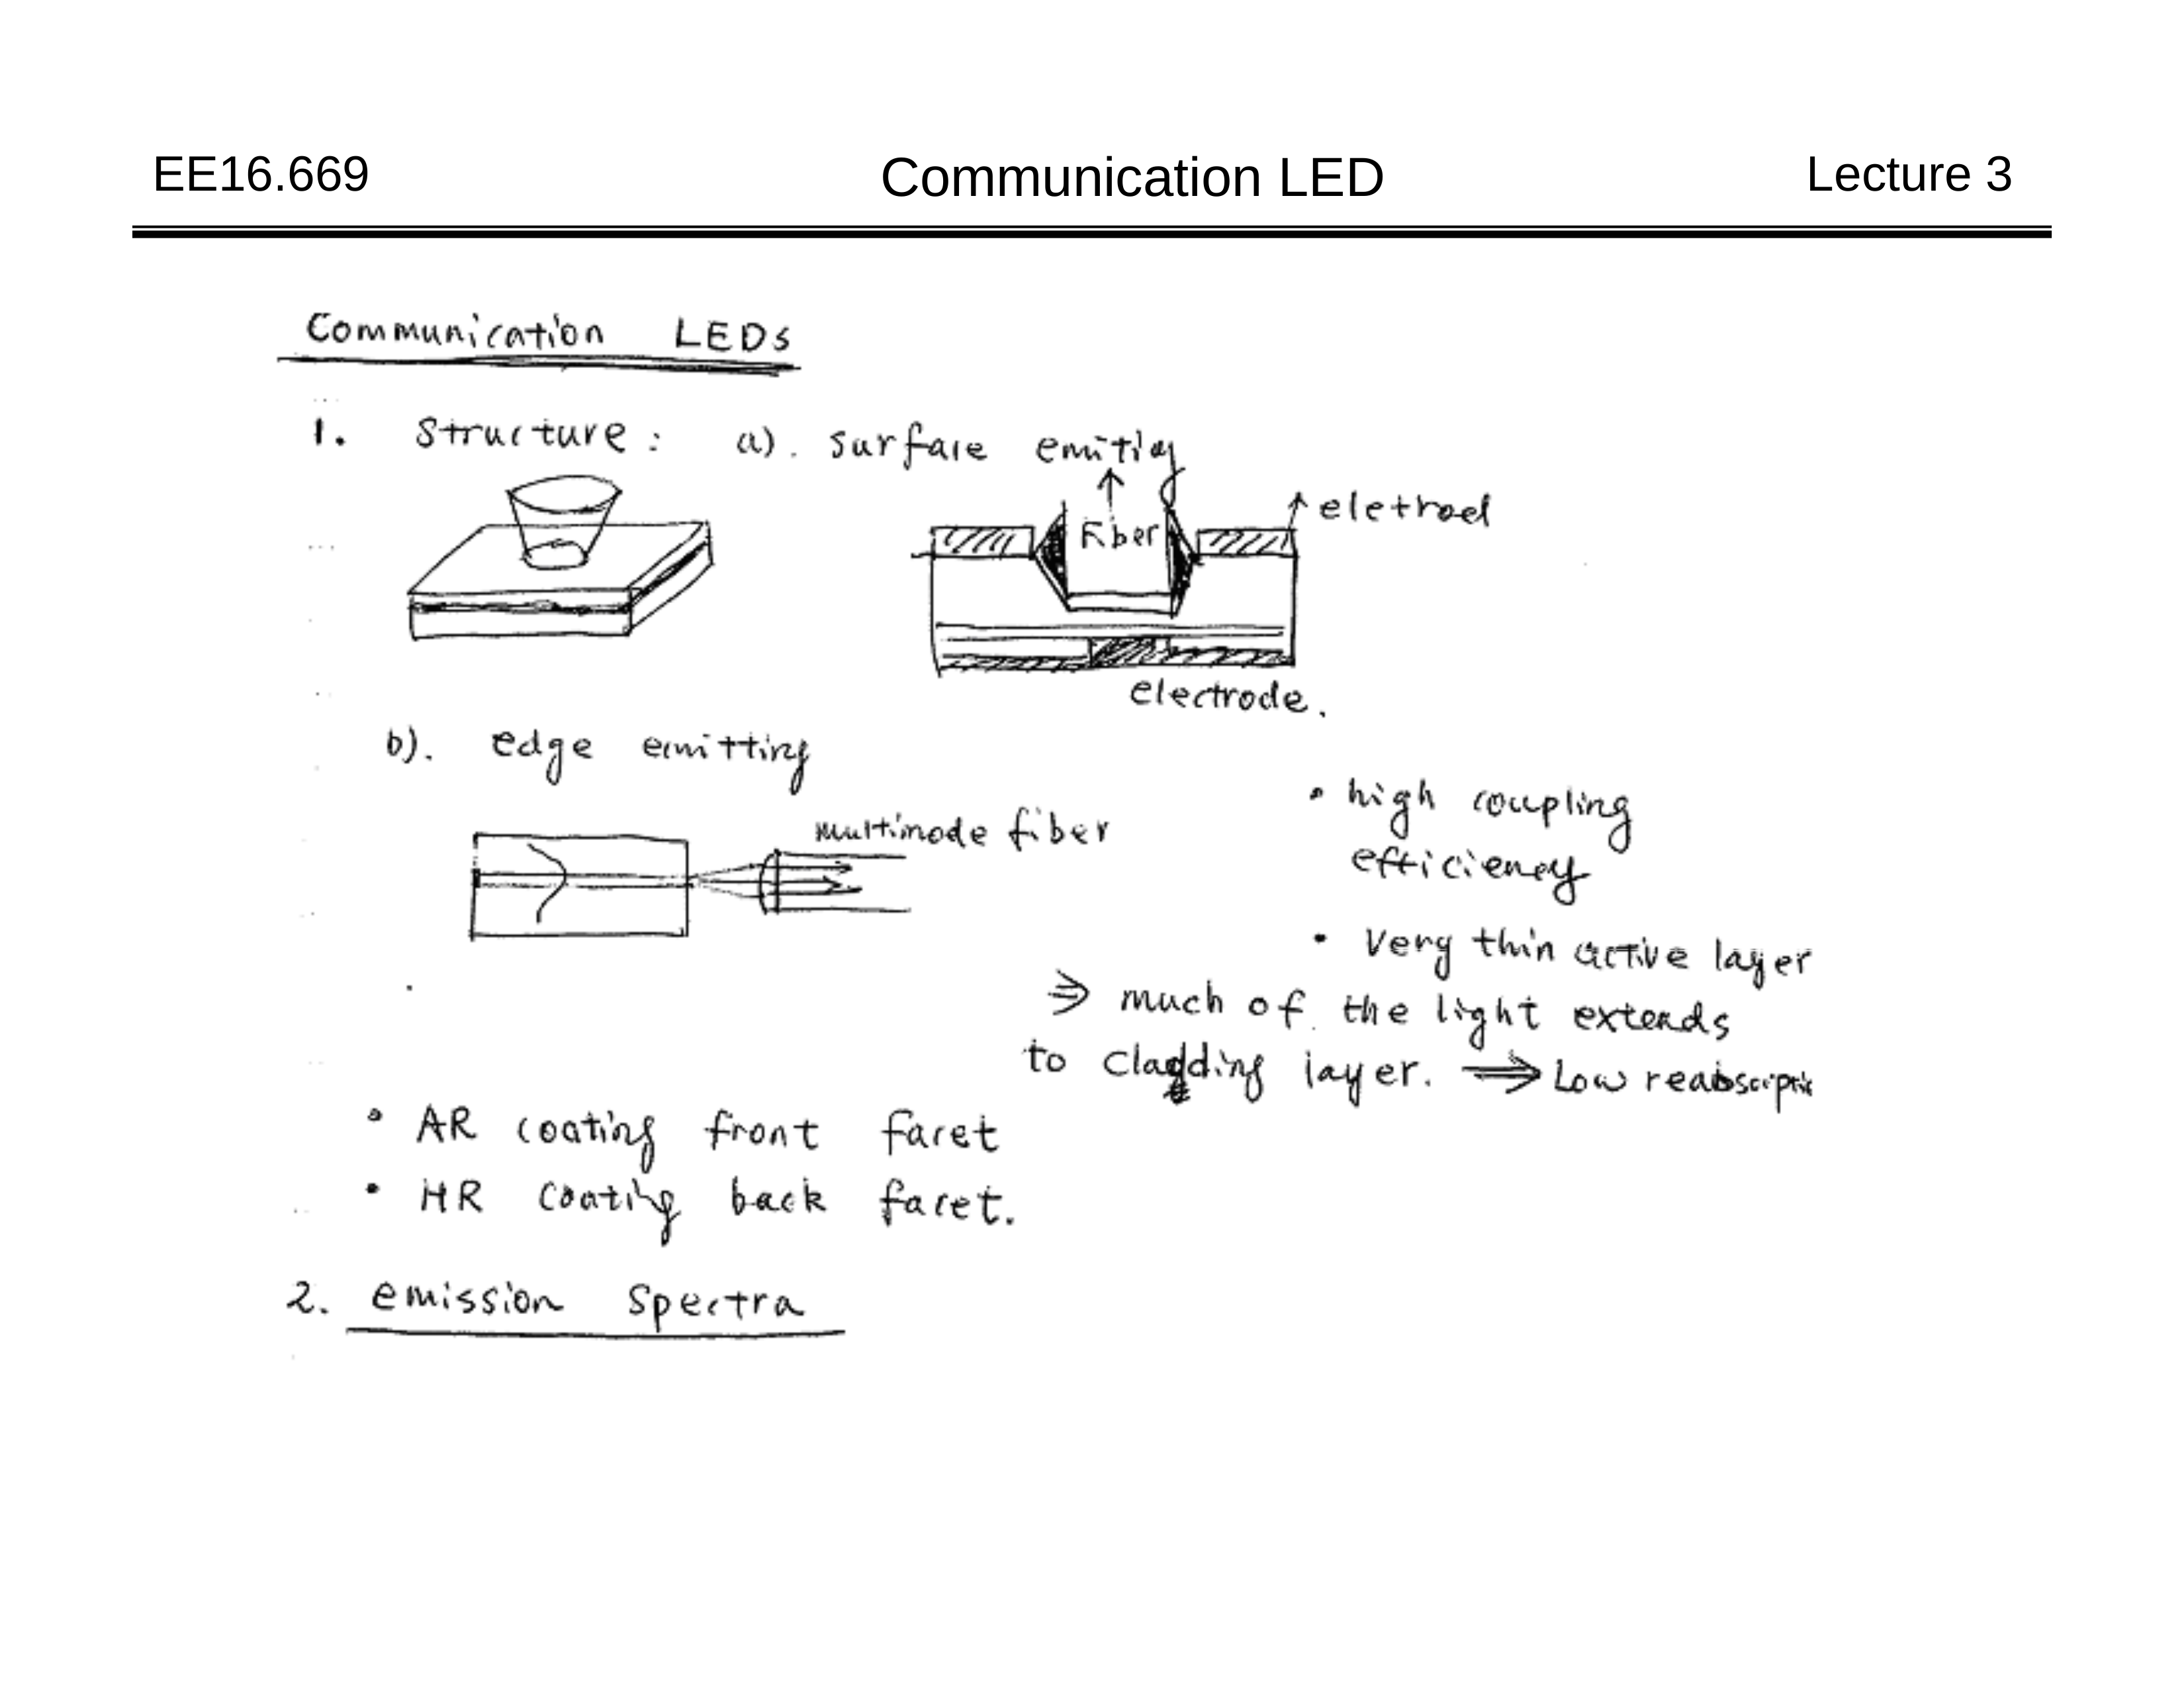 EE16.669 Communication LED Lecture 3
Communication LEDs
1. structure: a). surface emitting
eletrod
Fiber
electrode.
b). edge emitting
multimode fiber
• high coupling
efficiency
• Very thin active layer
⇒ much of the light extends
to cladding layer. ⇒ Low reabsorption
• AR coating front facet
• HR coating back facet.
2. emission spectra